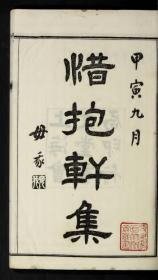 甲寅九月
惜抱軒集